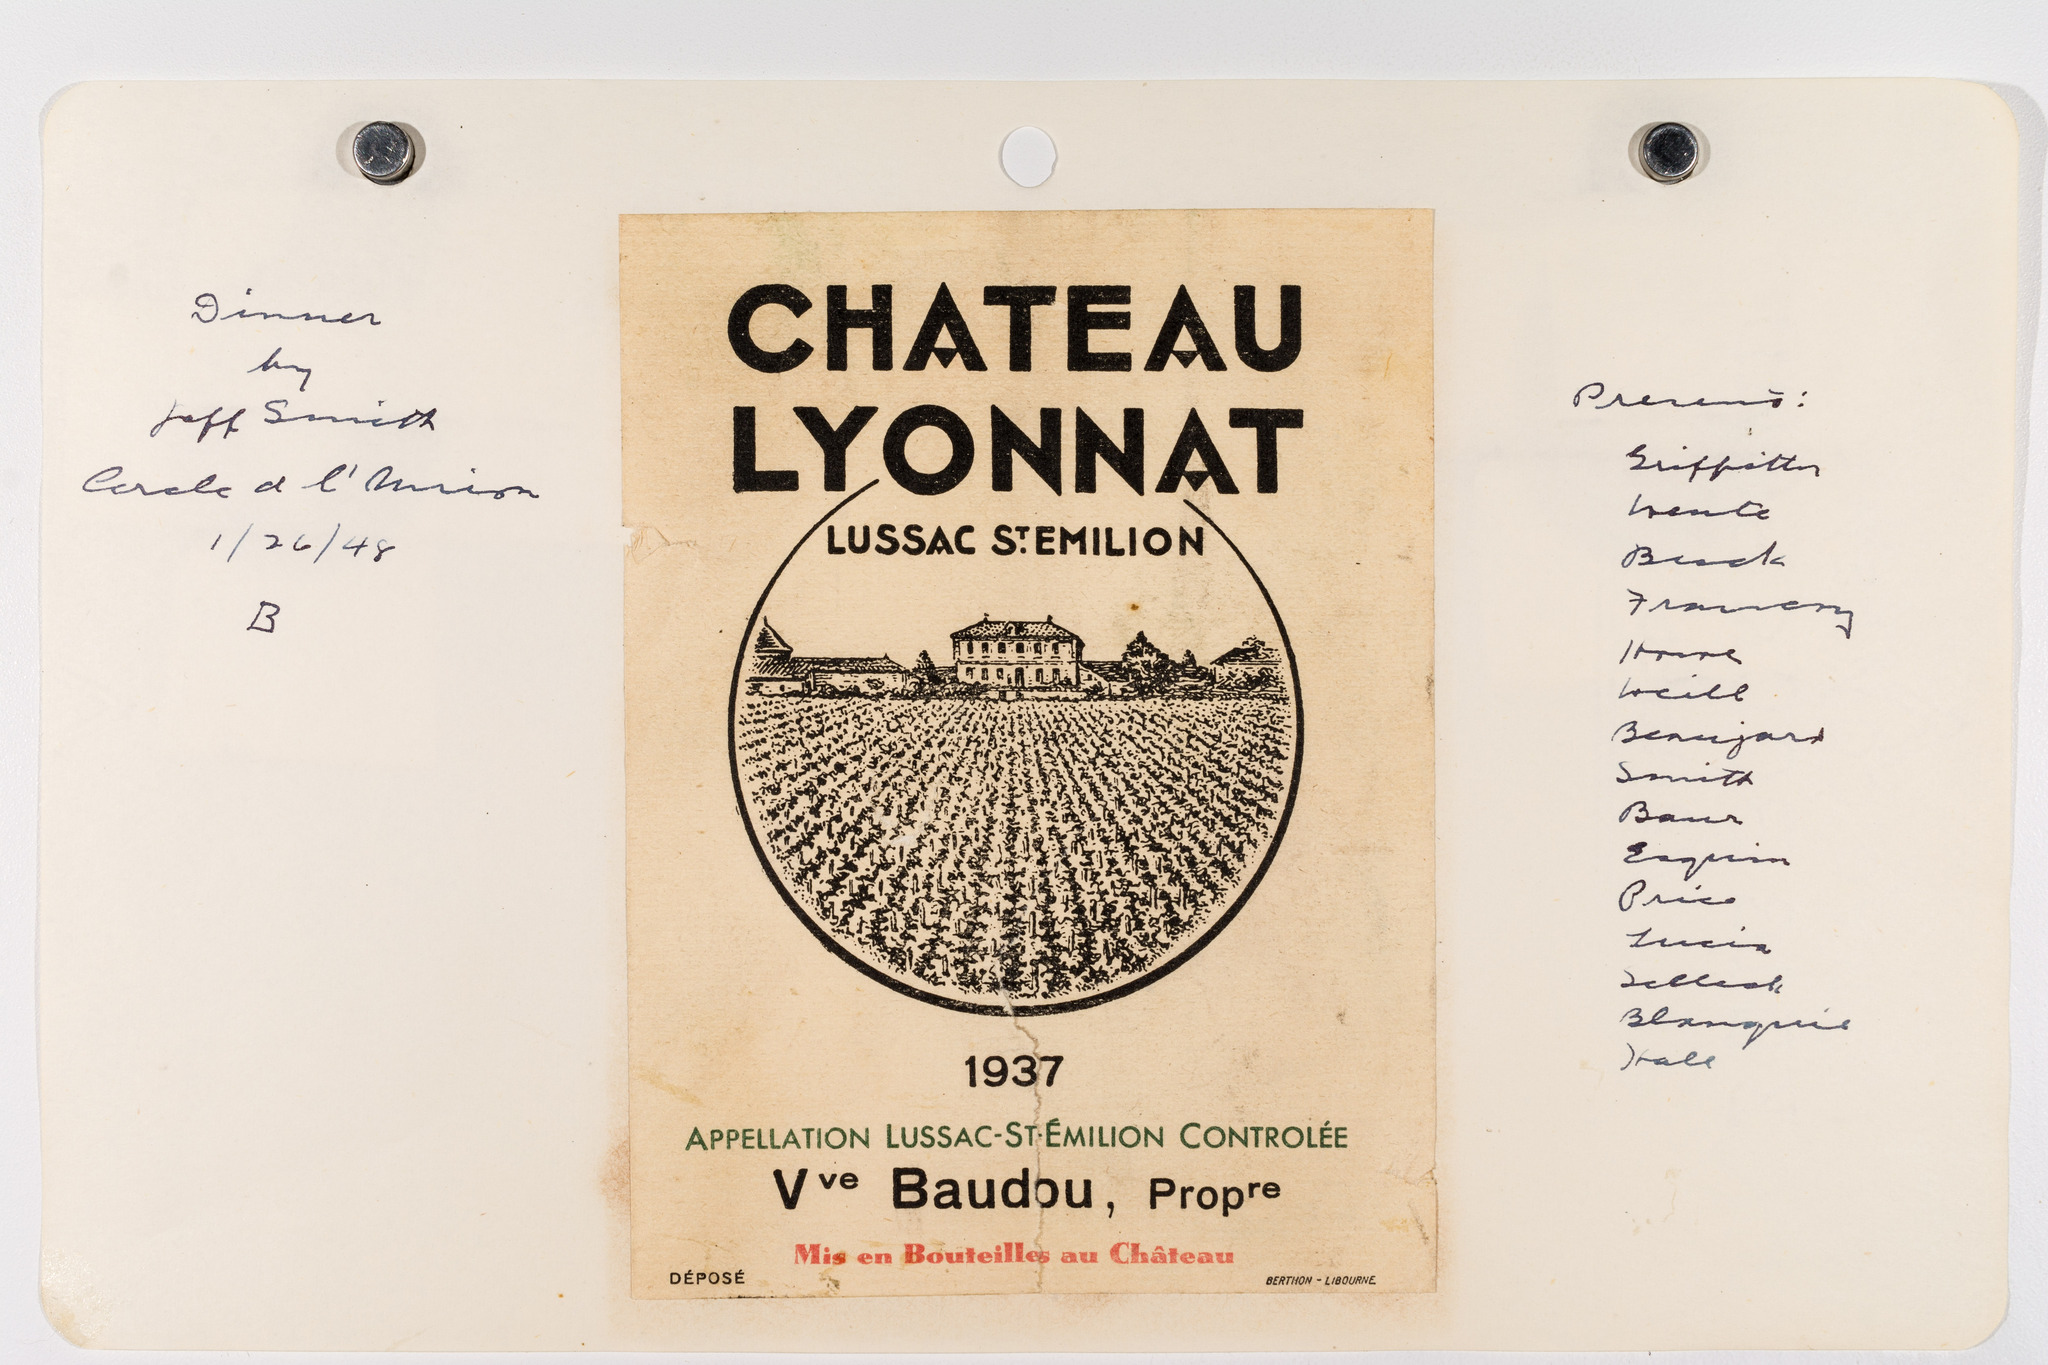 Dinner
by
Jeff Smith
Cercle de l'Union
1/26/48
B
CHATEAU
LYONNAT
LUSSAC ST. EMILION
1937
APPELLATION LUSSAC-ST-ÉMILION CONTROLÉE
Vve Baudou, Propre
Mis en Bouteilles au Château
DÉPOSÉ
BERTHON - LIBOURNE
Present:
Griffiths
Wente
Beck
Howe
Weill
Beaujard
Smith
Baur
Esquin
Price
Lucia
Selleck
Blanquie
Hall